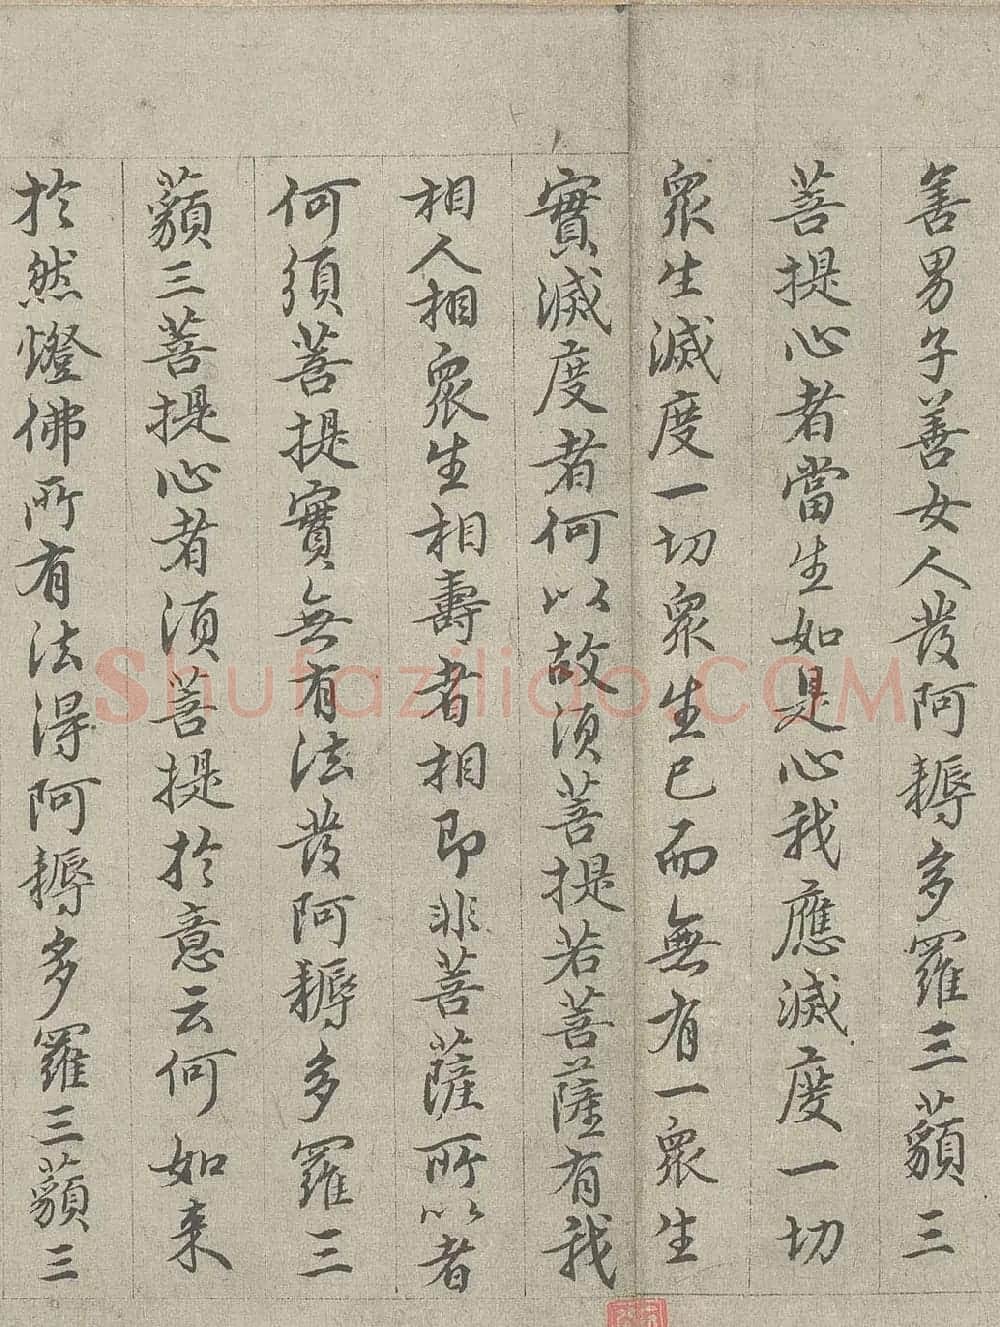 善男子善女人發阿耨多羅三藐三
菩提心者當生如是心我應滅度一切
眾生滅度一切眾生已而無有一眾生
實滅度者何以故須菩提若菩薩有我
相人相眾生相壽者相即非菩薩所以者
何須菩提實無有法發阿耨多羅三
藐三菩提心者須菩提於意云何如来
於然燈佛所有法得阿耨多羅三藐三
Shufaziliao.COM